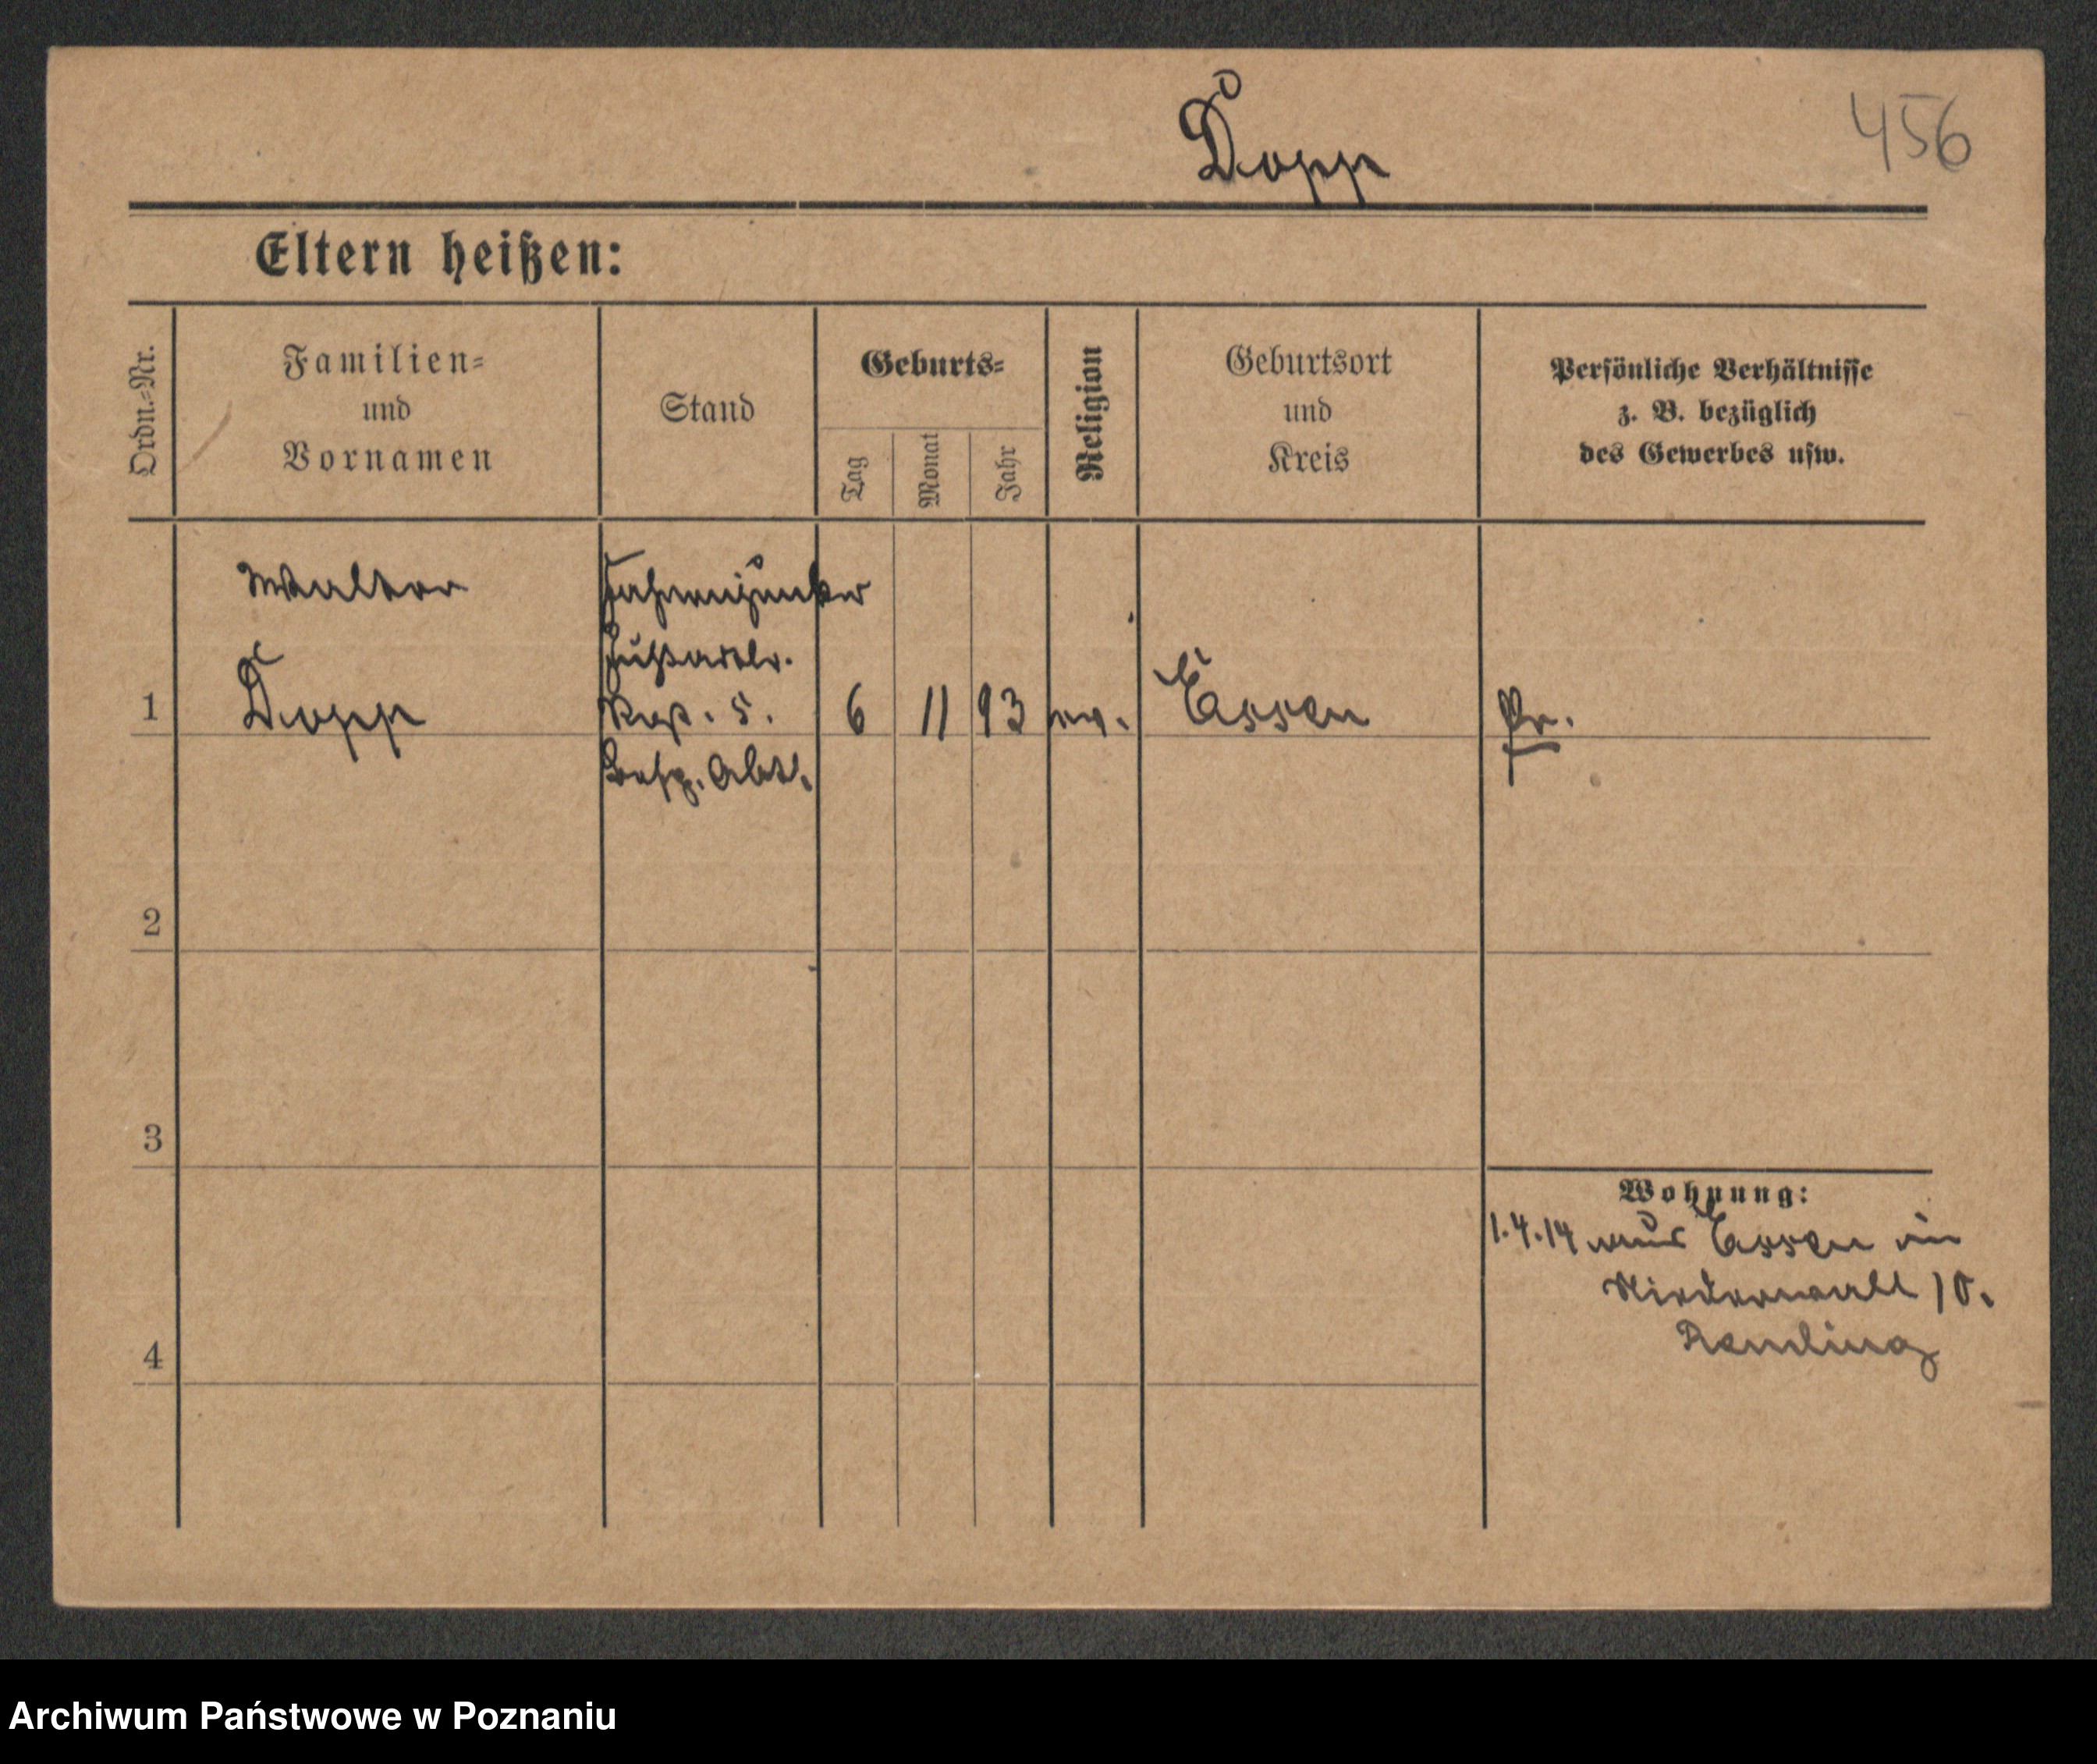 Dopp
456
Eltern heißen:
Ordn.=Nr.
Familien=
und
Vornamen
Stand
Geburts=
Tag
Monat
Jahr
Religion
Geburtsort
und
Kreis
Persönliche Verhältnisse
z. B. bezüglich
des Gewerbes usw.
Walter
Dopp
Fahnenjunker
Fußartlr.
Regt. 5.
Besp. Abt.
1
6
11
93
ev.
Essen
Pr.
2
3
4
Wohnung:
1.4.14 aus Essen in
Niederwall 10.
Archiwum Państwowe w Poznaniu